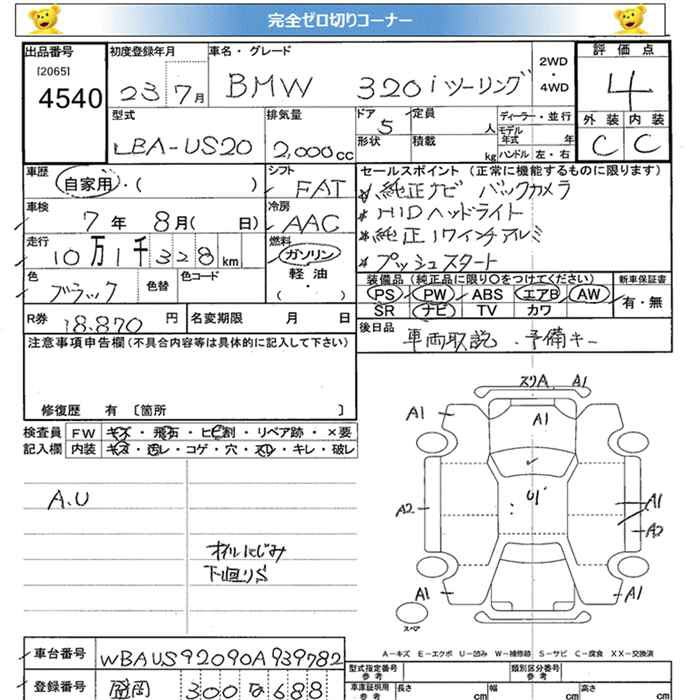 完全ゼロ切りコーナー
出品番号 初度登録年月 車名・グレード 評価点
[2065] 4540 23 7月 BMW 320i ツーリング 2WD・4WD 4
型式 排気量 ドア 定員 ディーラー・並行 外装 内装
LBA-US20 2,000cc 5 人 モデル年式 年 C C
形状 積載 kg ハンドル 左・右
車歴 シフト セールスポイント (正常に機能するものに限ります)
自家用・( ) FAT 純正ナビ バックカメラ
車検 冷房 HIDヘッドライト
7年 8月( 日) AAC 純正17インチアルミ
走行 燃料 プッシュスタート
10万1千328km ガソリン
色 色替 色コード 軽油 装備品 (純正品に限り○をつけてください) 新車保証書
ブラック ( ・ ) PS PW ABS エアB AW 有・無
SR ナビ TV カワ
R券 18,870円 名変期限 月 日 後日品
車両取説 ・予備キー
注意事項申告欄 (不具合内容等は具体的に記入して下さい)
修復歴 有 〔箇所 〕
検査員 FW キズ・飛石・ヒビ割・リペア跡・×要
記入欄 内装 キズ・汚レ・コゲ・穴・スレ・キレ・破レ
A.U
オイルにじみ
下回りS
スリA A1
A1 A1 A1
U1
A2 A1
A2
A1 A1
スペア
A－キズ E－エクボ U－凹み W－補修跡 S－サビ C－腐食 XX－交換済
車台番号 WBAUS92090A939782 型式指定番号 参考 類別区分番号 参考
登録番号 盛岡 300 な 688 車庫証明用 参考 長さ cm 幅 cm 高さ cm